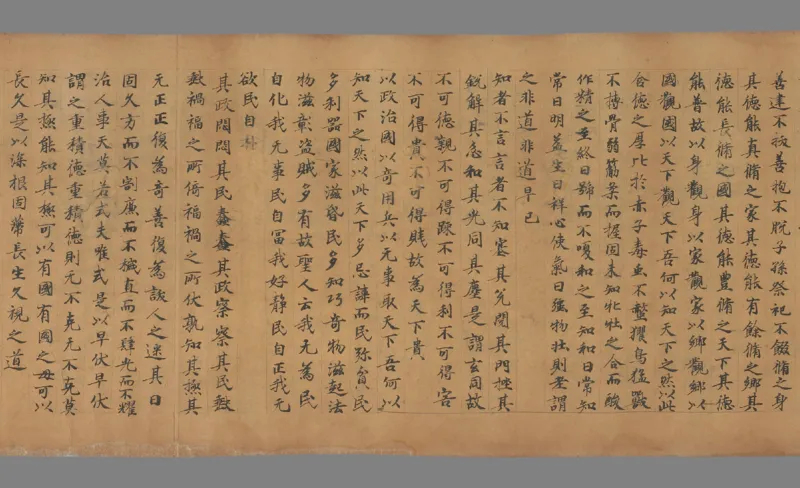 善建不拔善抱不脫子孫祭祀不餟脩之身
其德能真脩之家其德能有餘脩之鄉其
德能長脩之國其德能豊脩之天下其德
能普故以身觀身以家觀家以鄉觀鄉以
國觀國以天下觀天下吾何以知天下之然以此
含德之厚比於赤子毒虫不螫玃鳥猛獸
不搏骨弱筋柔而握固未知牝牡之合而酸
作精之至終日號而不嗄和之至知和曰常知
常曰明益生曰祥心使氣曰強物壯則老謂
之非道非道早已
知者不言言者不知塞其兌閉其門挫其
銳解其忿和其光同其塵是謂玄同故
不可德親不可得踈不可得利不可得害
不可得貴不可得賤故為天下貴
以政治國以奇用兵以无事取天下吾何以
知天下之然以此天下多忌諱而民弥貧民
多利器國家滋昏民多知巧奇物滋起法
物滋彰盜賊多有故聖人云我无為民
自化我无事民自富我好静民自正我无
欲民自朴
其政悶悶其民蠢蠢其政察察其民𡙇
𡙇禍福之所倚福禍之所伏孰知其極其
无正正復為奇善復為訞人之迷其日
固久方而不割廉而不穢直而不肆光而不耀
治人事天莫若式夫唯式是以早伏早伏
謂之重積德重積德則无不克无不克莫
知其極能知其極可以有國有國之母可以
長久是以深根固蔕長生久視之道